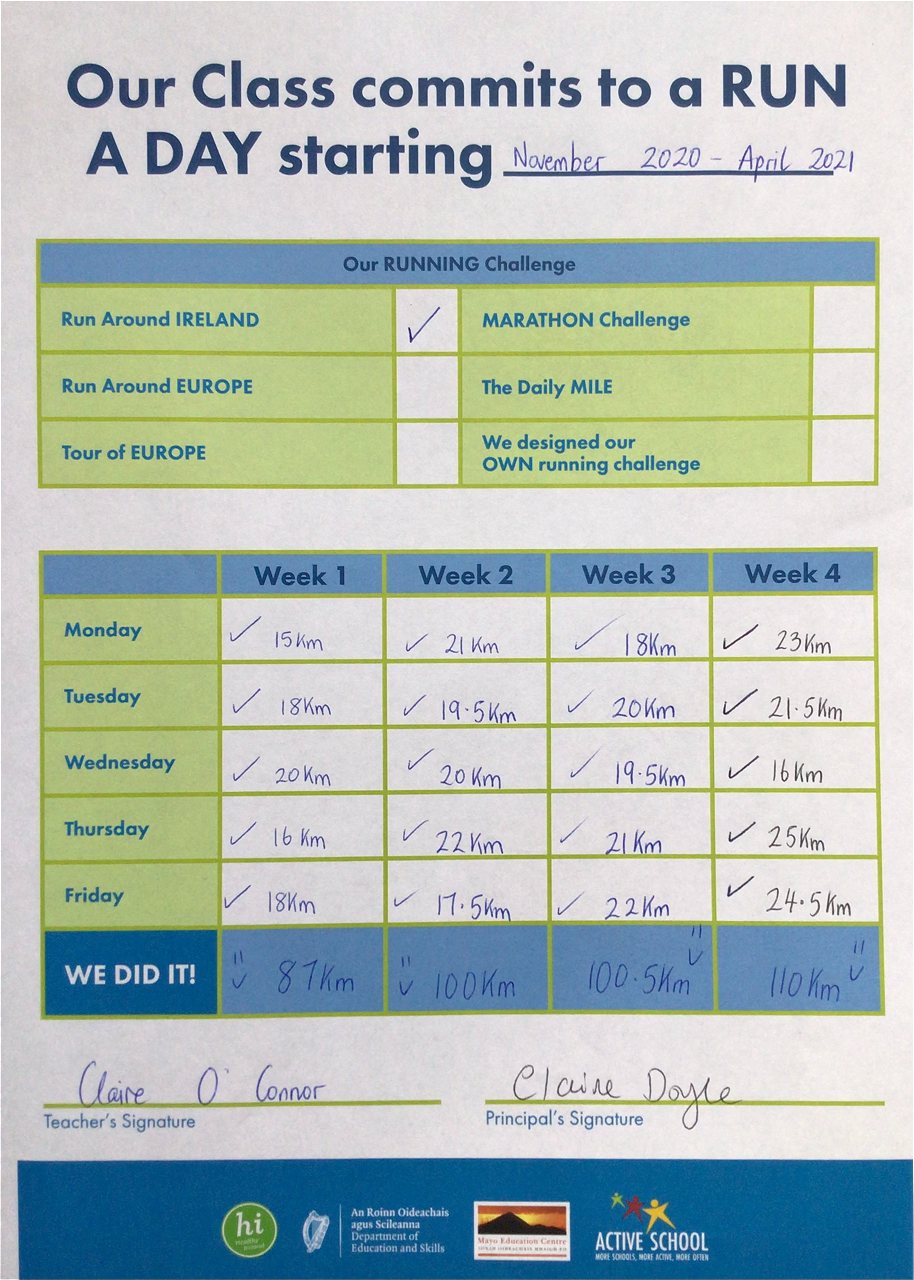 Our Class commits to a RUN
A DAY starting November 2020 - April 2021
Our RUNNING Challenge
Run Around IRELAND ✓ MARATHON Challenge
Run Around EUROPE The Daily MILE
Tour of EUROPE We designed our
OWN running challenge
Week 1 Week 2 Week 3 Week 4
Monday ✓ 15Km ✓ 21Km ✓ 18Km ✓ 23Km
Tuesday ✓ 18Km ✓ 19.5Km ✓ 20Km ✓ 21.5Km
Wednesday ✓ 20Km ✓ 20Km ✓ 19.5Km ✓ 16Km
Thursday ✓ 16Km ✓ 22Km ✓ 21Km ✓ 25Km
Friday ✓ 18Km ✓ 17.5Km ✓ 22Km ✓ 24.5Km
WE DID IT! 87Km 100Km 100.5Km 110Km
Claire O'Connor Claire Doyle
Teacher's Signature Principal's Signature
hi
Healthy
Ireland
An Roinn Oideachais
agus Scileanna
Department of
Education and Skills
Mayo Education Centre
ACTIVE SCHOOL
MORE SCHOOLS, MORE ACTIVE, MORE OFTEN